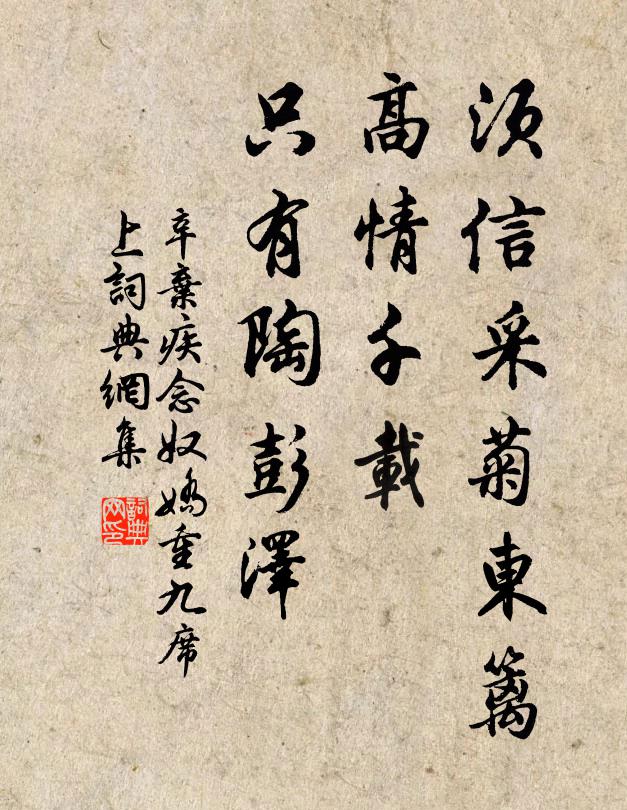 须信采菊東籬
高情千載
只有陶彭澤
辛棄疾念奴嬌重九席
上詞典網集
詞典
网印